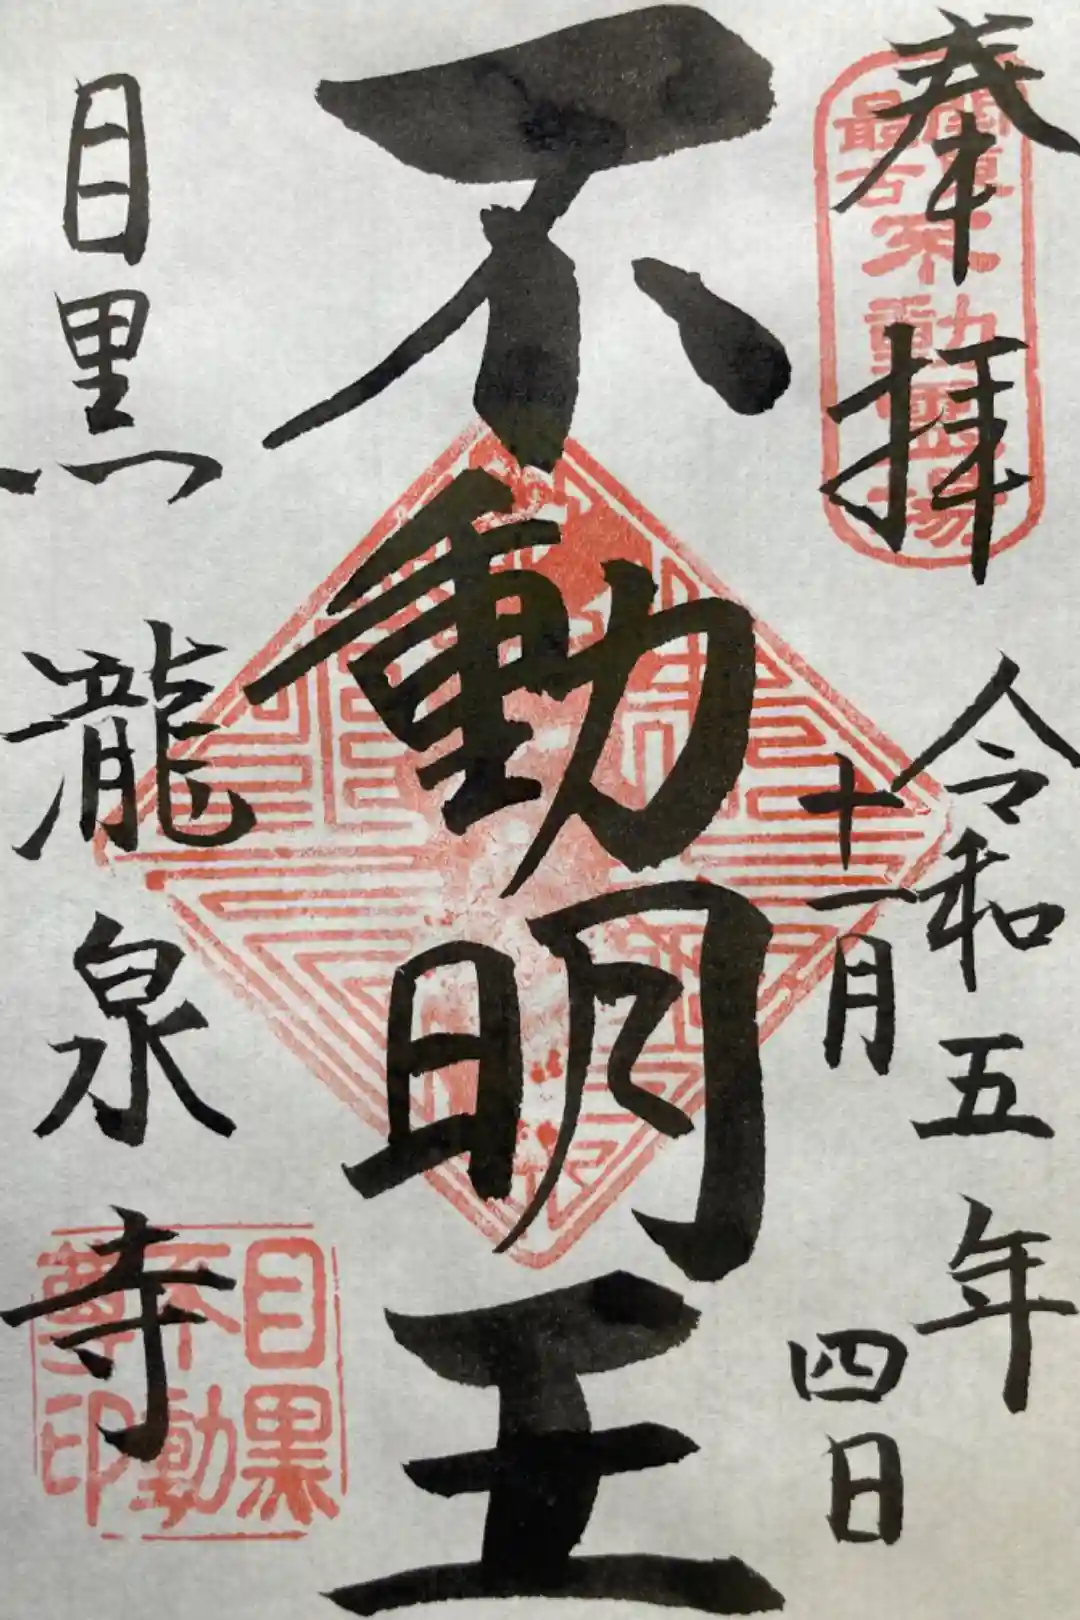 奉拝
関東最古不動霊場
令和五年
十一月四日
不動明王
目黒 龍泉寺
目黒不動尊印